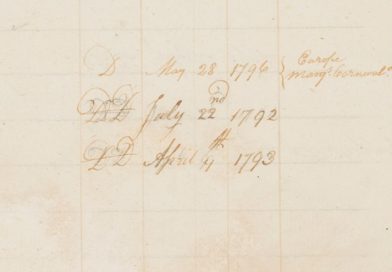 D May 28 1796 { Europe
Marqs Cornwalls
DD July 22nd 1792
DD April 4th 1793